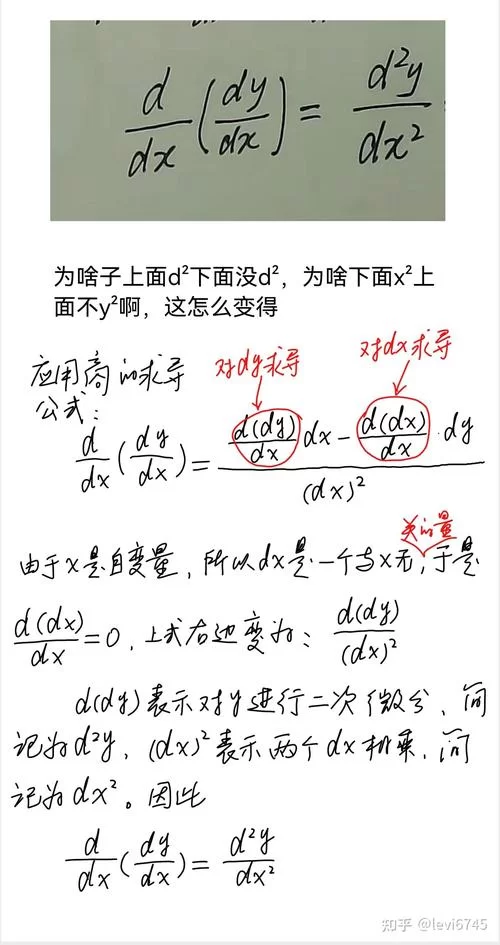 d/dx (dy/dx) = d²y/dx²
为啥子上面d²下面没d²，为啥下面x²上
面不y²啊，这怎么变得
应用商的求导
公式：
对dy求导
对dx求导
d/dx (dy/dx) = (d(dy)/dx dx - d(dx)/dx · dy)/(dx)²
关的量
由于x是自变量，所以dx是一个与x无，于是
d(dx)/dx = 0，上式右边变为：d(dy)/(dx)²
d(dy)表示对y进行二次微分，简
记为d²y，(dx)²表示两个dx相乘，简
记为dx²。因此
d/dx (dy/dx) = d²y/dx²
知乎 @levi6745